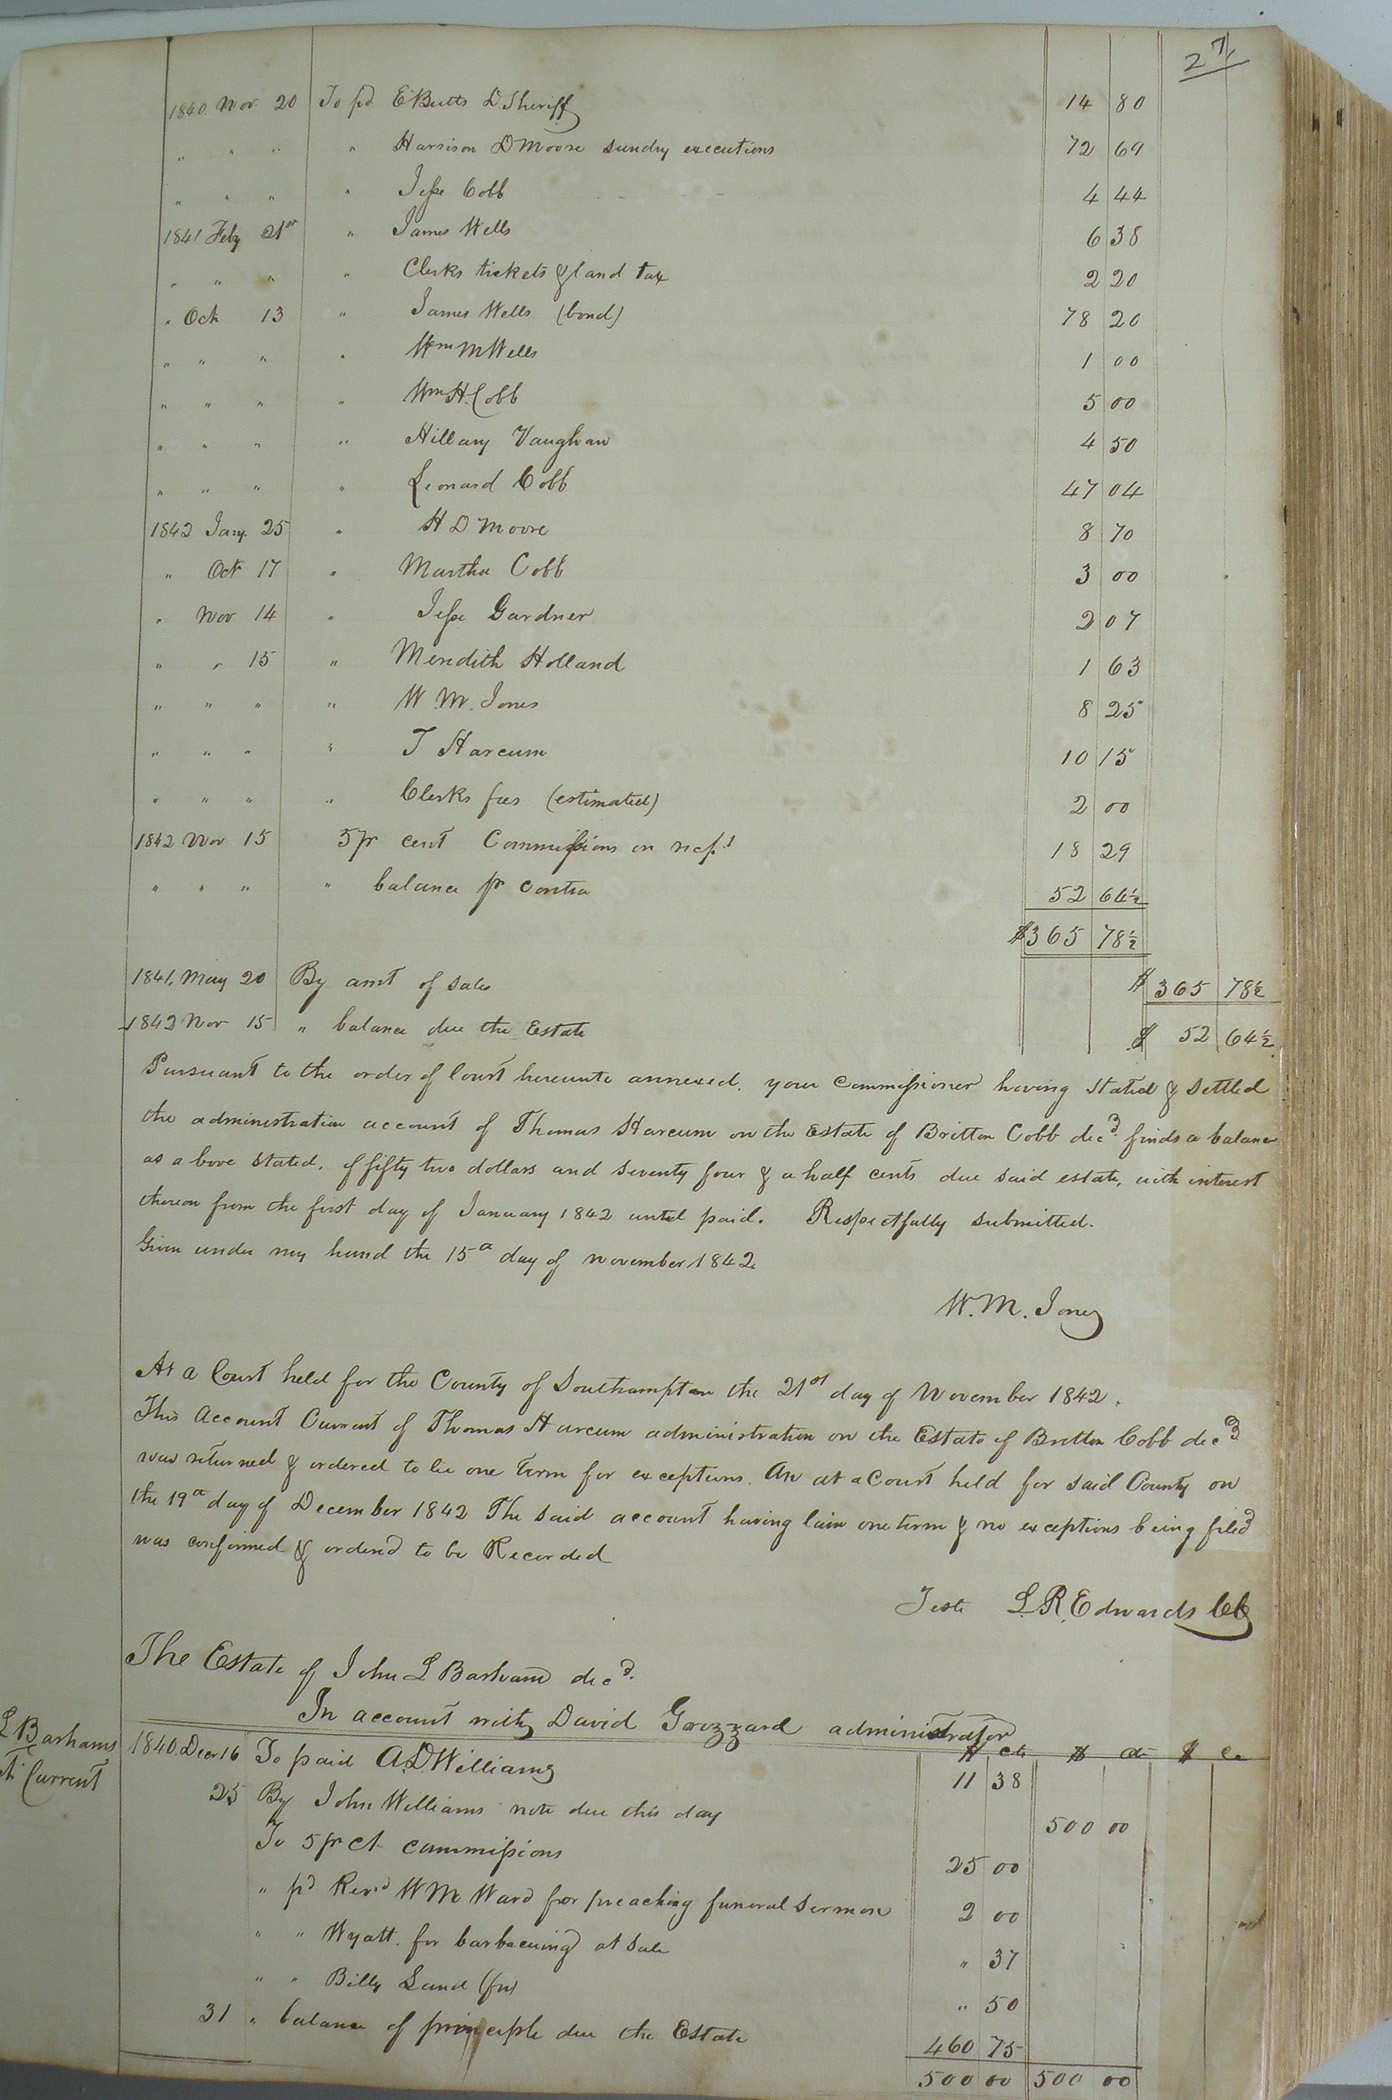 27
1840. Nov. 20 To pd E Butts D Sheriff 14 80
" " " " Harrison D Moore sundry executions 72 69
" " " " Jesse Cobb 4 44
1841 Feby 21st " James Wells 6 38
" " " " Clerks tickets & land tax 2 20
" Oct 13 " James Wells (bond) 78 20
" " " " Wm M Wells 1 00
" " " " Wm H. Cobb 5 00
" " " " Hillary Vaughan 4 50
" " " " Leonard Cobb 47 04
1842 Jany. 25 " H D Moore 8 70
" Oct 17 " Martha Cobb 3 00
" Nov 14 " Jesse Gardner 2 07
" " 15 " Meridith Holland 1 63
" " " " W. M. Jones 8 25
" " " " T Harcum 10 15
" " " " Clerks fees (estimated) 2 00
1842 Nov 15 5 pr cent Commissions on 18 29
" " " " balance pr contra 52 64½
$365 78½
1841, May 20 By amt of sales $ 365 78½
1842 Nov 15 " balance due the Estate $ 52 64½
Pursuant to the order of Court hereunto annexed. your commissioner having stated & settled
the administration account of Thomas Harcum on the Estate of Britton Cobb decd. finds a balance
as above stated, of fifty two dollars and seventy four & a half cents due said estate, with interest
thereon from the first day of January 1842 until paid. Respectfully submitted.
Given under my hand the 15th day of november 1842
W. M. Jones
At a Court held for the County of Southampton the 21st day of November 1842.
This Account Current of Thomas Harcum administration on the Estate of Britton Cobb decd
was returned & ordered to lie one term for exceptions. An at a Court held for said County on
the 19th day of December 1842 The said account having lain one term & no exceptions being filed
was confirmed & orderd to be Recorded
Teste L. R. Edwards Clk
The Estate of John L Barham decd.
In account with David Grizzard administrator
L Barhams
Current
$ cts $ cts $ c
1840. Decr 16 To paid A. D. Williams 11 38
25 By John Williams note due this day 500 00
To 5 pr ct commissions 25 00
" pd Revd W M Ward for preaching funeral sermon 2 00
" " Wyatt. for barbacuing at sale " 37
" " Billy Land " 50
31 " balance of principle due the Estate 460 75
500 00 500 00